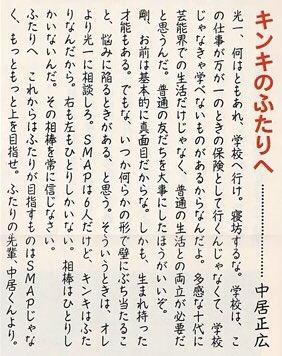 キンキのふたりへ………………中居正広
光一、何はともあれ、学校へ行け。寝坊するな。学校は、こ
の仕事が万が一のときの保険として行くんじゃなくて、学校
じゃなきゃ学べないものがあるからなんだよ。多感な十代に
芸能界での生活だけじゃなく、普通の生活との両立が必要だ
と思うんだ。普通の友だちを大事にしたほうがいいぞ。
剛、お前は基本的に真面目だからな。しかも、生まれ持った
才能もある。でもな、いつか何らかの形で壁にぶち当たるこ
と、悩みに陥るときがある、と思う。そういうときは、オレ
より光一に相談しろ。SMAPは6人だけど、キンキはふた
りなんだから。右も左もひとりしかいない。相棒はひとりし
かいないんだ。その相棒を常に信じなさい。
ふたりへ　これからはふたりが目指すものはSMAPじゃな
く、もっともっと上を目指せ。ふたりの先輩　中居くんより。